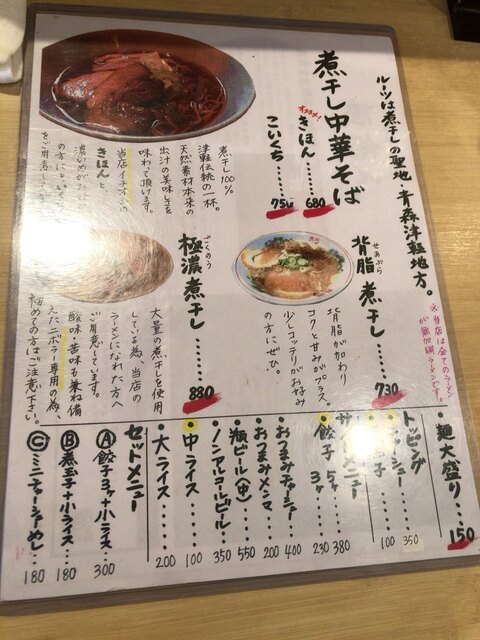 ルーツは煮干しの聖地・青森津軽地方。
煮干し中華そば
オススメ!
きほん……680
こいくち……750
煮干し100%
津軽伝統の一杯。
天然素材本来の
出汁の美味しさを
味わって頂けます。
当店イチオシの
きほんと、
濃いめがお
の方にこい
をご用意し
※当店は全てのラーメン
が無加調ラーメンです。
せあぶら
背脂煮干し……730
背脂が加わり
コクと甘みがプラス。
少しコッテリがお好み
の方にぜひ。
ごくのう
極濃煮干し……880
大量の煮干しを使用
している為、当店の
ラーメンになれた方へ
ご用意しています。
酸味・苦味も兼ね備
えたニボラー専用の為、
初めての方はご注意下さい。
・麺大盛り……150
トッピング
チャーシュー…350
玉子…100
サイドメニュー
・餃子 5ヶ…380
3ヶ…230
・おつまみチャーシュー…400
・おつまみメンマ…200
・瓶ビール(中)…550
・ノンアルコールビール…350
・中ライス……100
・大ライス……200
セットメニュー
Ⓐ餃子3ヶ+小ライス…300
Ⓑ煮玉子+小ライス……180
Ⓒミニチャーシューめし…180